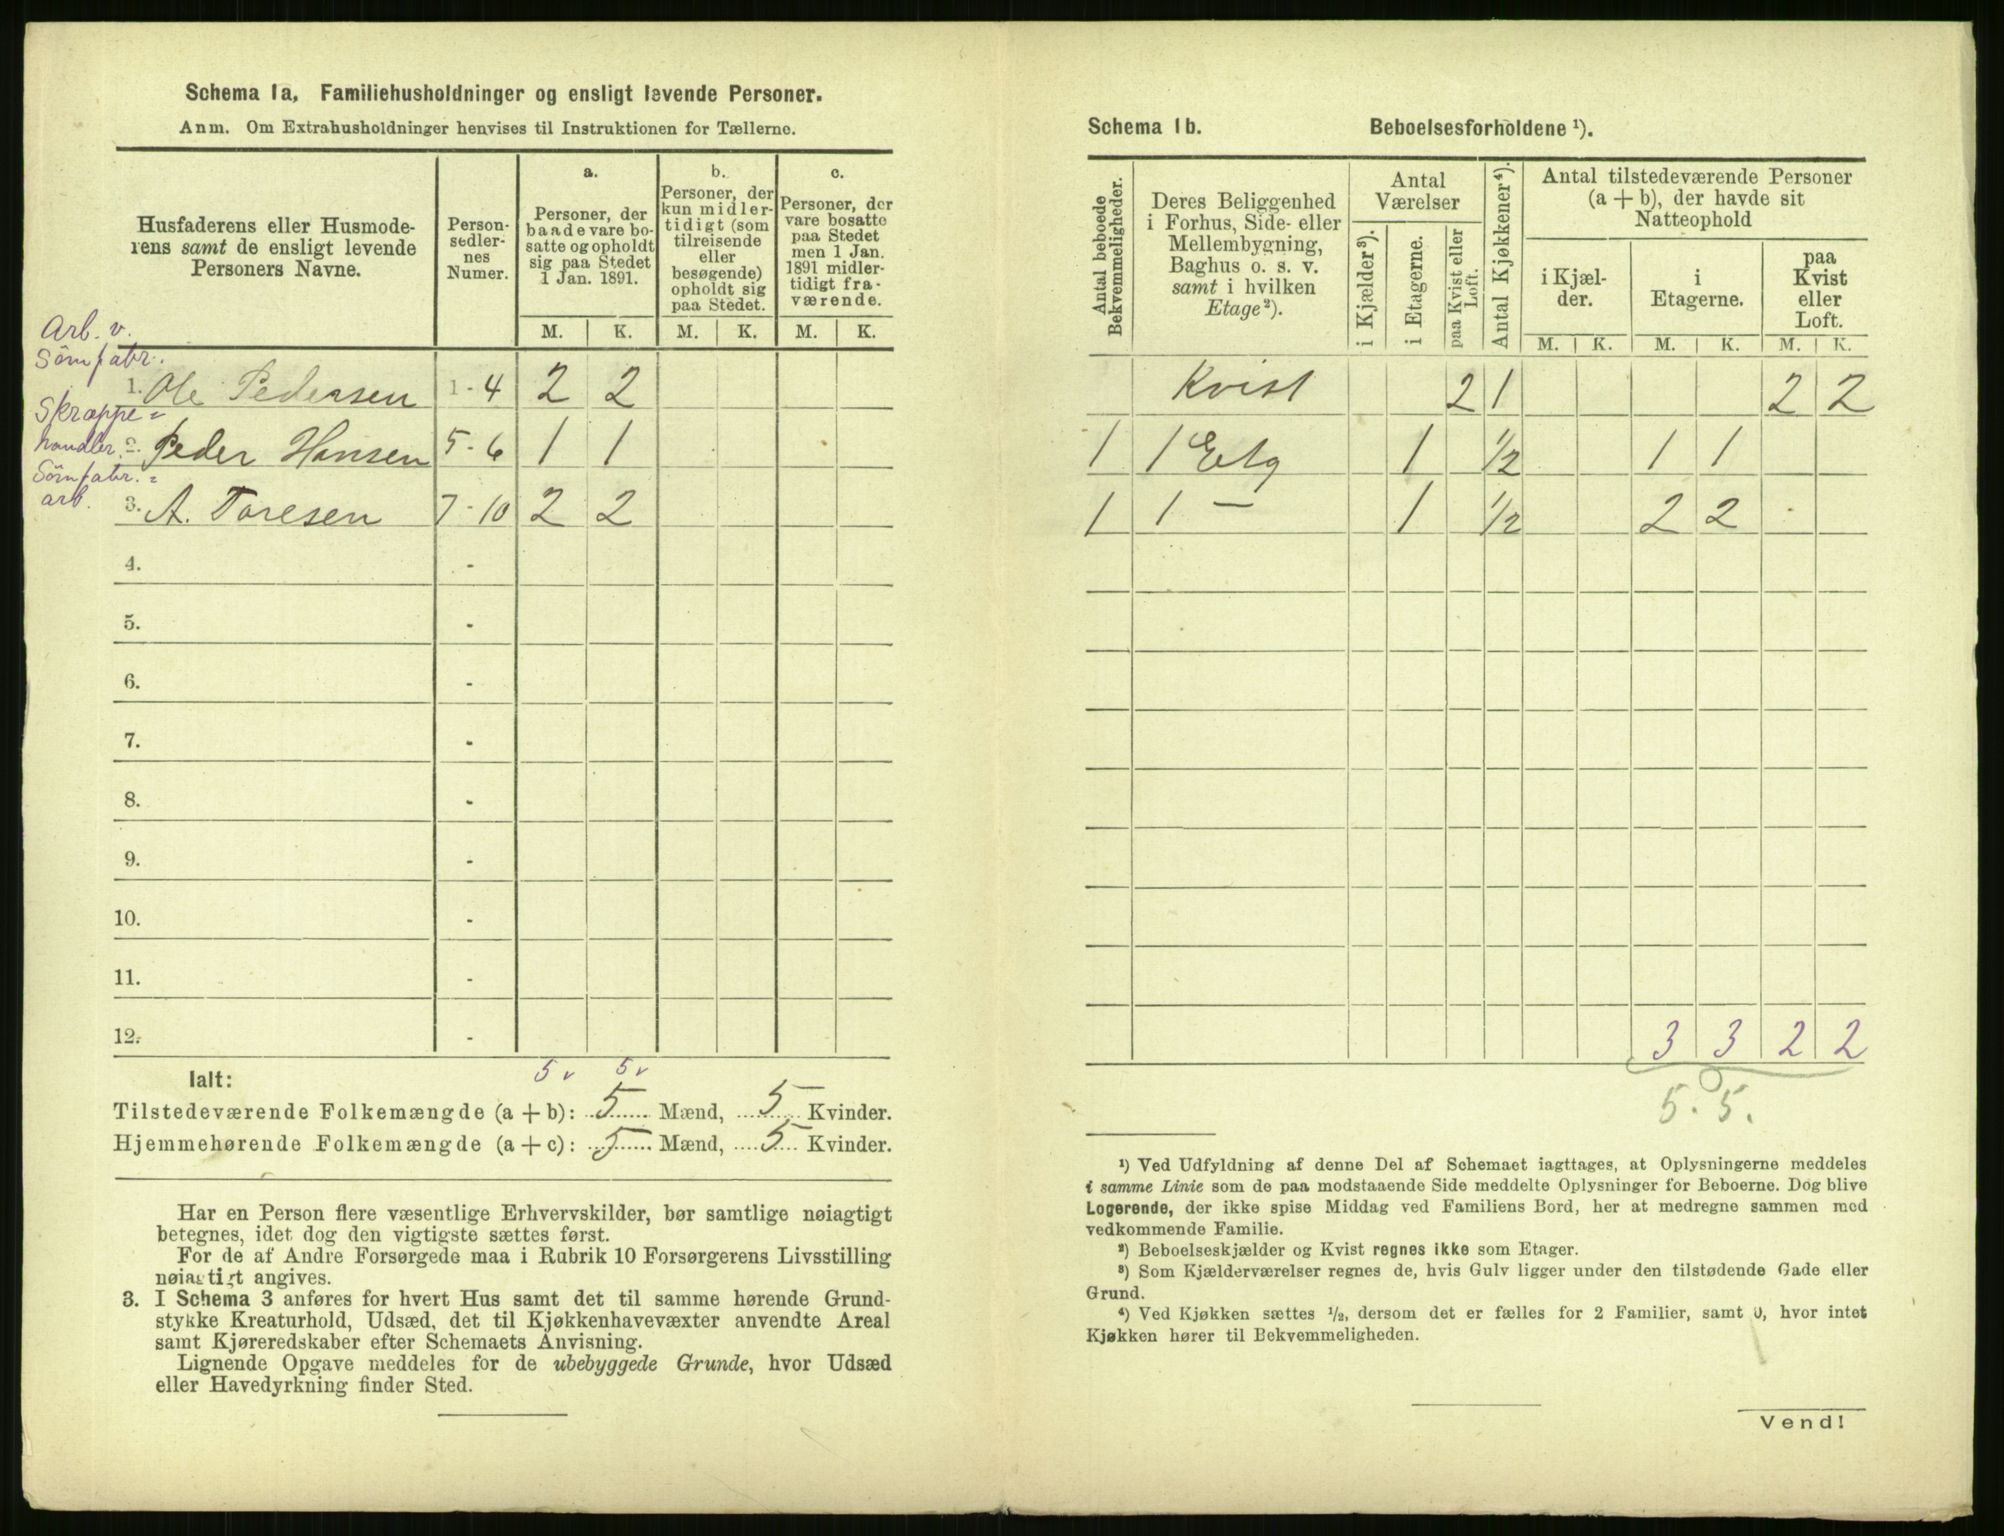 Schema 1a, Familiehusholdninger og ensligt levende Personer.
Anm. Om Extrahusholdninger henvises til Instruktionen for Tællerne.
Husfaderens eller Husmode-
rens samt de ensligt levende
Personers Navne.
Person-
sedler-
nes
Numer.
a.
Personer, der
baade vare bo-
satte og opholdt
sig paa Stedet
1 Jan. 1891.
b.
Personer, der
kun midler-
tidigt (som
tilreisende
eller
besøgende)
opholdt sig
paa Stedet.
c.
Personer, der
vare bosatte
paa Stedet
men 1 Jan.
1891 midler-
tidigt fra-
værende.
M. K. M. K. M. K.
Arb. v.
Sömfabr.
1. Ole Pedersen 1-4 2 2
Skrappe=
handler.
2. Peder Hansen 5-6 1 1
Sömfabr.=
arb.
3. A. Toresen 7-10 2 2
4. -
5. -
6. -
7. -
8. -
9. -
10. -
11. -
12. -
5 v 5 v
Ialt:
Tilstedeværende Folkemængde (a + b): 5 Mænd, 5 Kvinder.
Hjemmehørende Folkemængde (a + c): 5 Mænd, 5 Kvinder.
Har en Person flere væsentlige Erhvervskilder, bør samtlige nøiagtigt
betegnes, idet dog den vigtigste sættes først.
For de af Andre Forsørgede maa i Rubrik 10 Forsørgerens Livsstilling
nøiagtigt angives.
3. I Schema 3 anføres for hvert Hus samt det til samme hørende Grund-
stykke Kreaturhold, Udsæd, det til Kjøkkenhavevæxter anvendte Areal
samt Kjøreredskaber efter Schemaets Anvisning.
Lignende Opgave meddeles for de ubebyggede Grunde, hvor Udsæd
eller Havedyrkning finder Sted.
Schema 1b. Beboelsesforholdene ¹).
Antal beboede
Bekvemmeligheder.
Deres Beliggenhed
i Forhus, Side- eller
Mellembygning,
Baghus o. s. v.
samt i hvilken
Etage²).
Antal
Værelser
i Kjælder³).
i Etagerne.
paa Kvist eller
Loft.
Antal Kjøkkener⁴).
Antal tilstedeværende Personer
(a + b), der havde sit
Natteophold
i Kjæl-
der.
i
Etagerne.
paa
Kvist
eller
Loft.
M. K. M. K. M. K.
Kvist 2 1 2 2
1 1 Etg 1 1/2 1 1
1 1 — 1 1/2 2 2
3 3 2 2
5. 5.
¹) Ved Udfyldning af denne Del af Schemaet iagttages, at Oplysningerne meddeles
i samme Linie som de paa modstaaende Side meddelte Oplysninger for Beboerne. Dog blive
Logerende, der ikke spise Middag ved Familiens Bord, her at medregne sammen med
vedkommende Familie.
²) Beboelseskjælder og Kvist regnes ikke som Etager.
³) Som Kjælderværelser regnes de, hvis Gulv ligger under den tilstødende Gade eller
Grund.
⁴) Ved Kjøkken sættes 1/2, dersom det er fælles for 2 Familier, samt 0, hvor intet
Kjøkken hører til Bekvemmeligheden.
Vend!